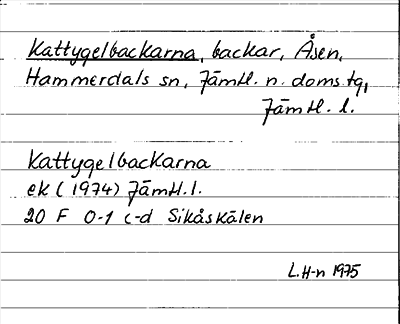 Kattygelbackarna, backar, Åsen,
Hammerdals sn, Jämtl. n. doms tg,
Jämtl. l.
Kattygelbackarna
ek (1974) Jämtl. l.
20 F 0-1 c-d Sikåskälen
L. H-n 1975